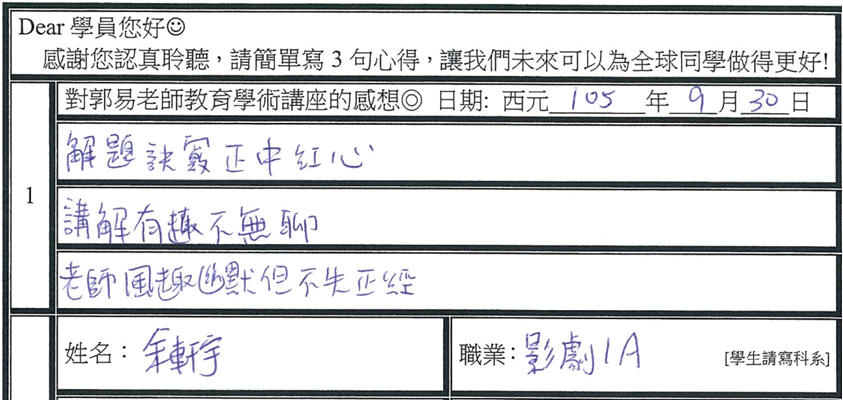 Dear 學員您好☺
感謝您認真聆聽，請簡單寫 3 句心得，讓我們未來可以為全球同學做得更好!
對郭易老師教育學術講座的感想◎ 日期: 西元 105 年 9 月 30 日
1
解題訣竅正中紅心
講解有趣不無聊
老師風趣幽默但不失正經
姓名： 余軒宇
職業：影劇1A [學生請寫科系]